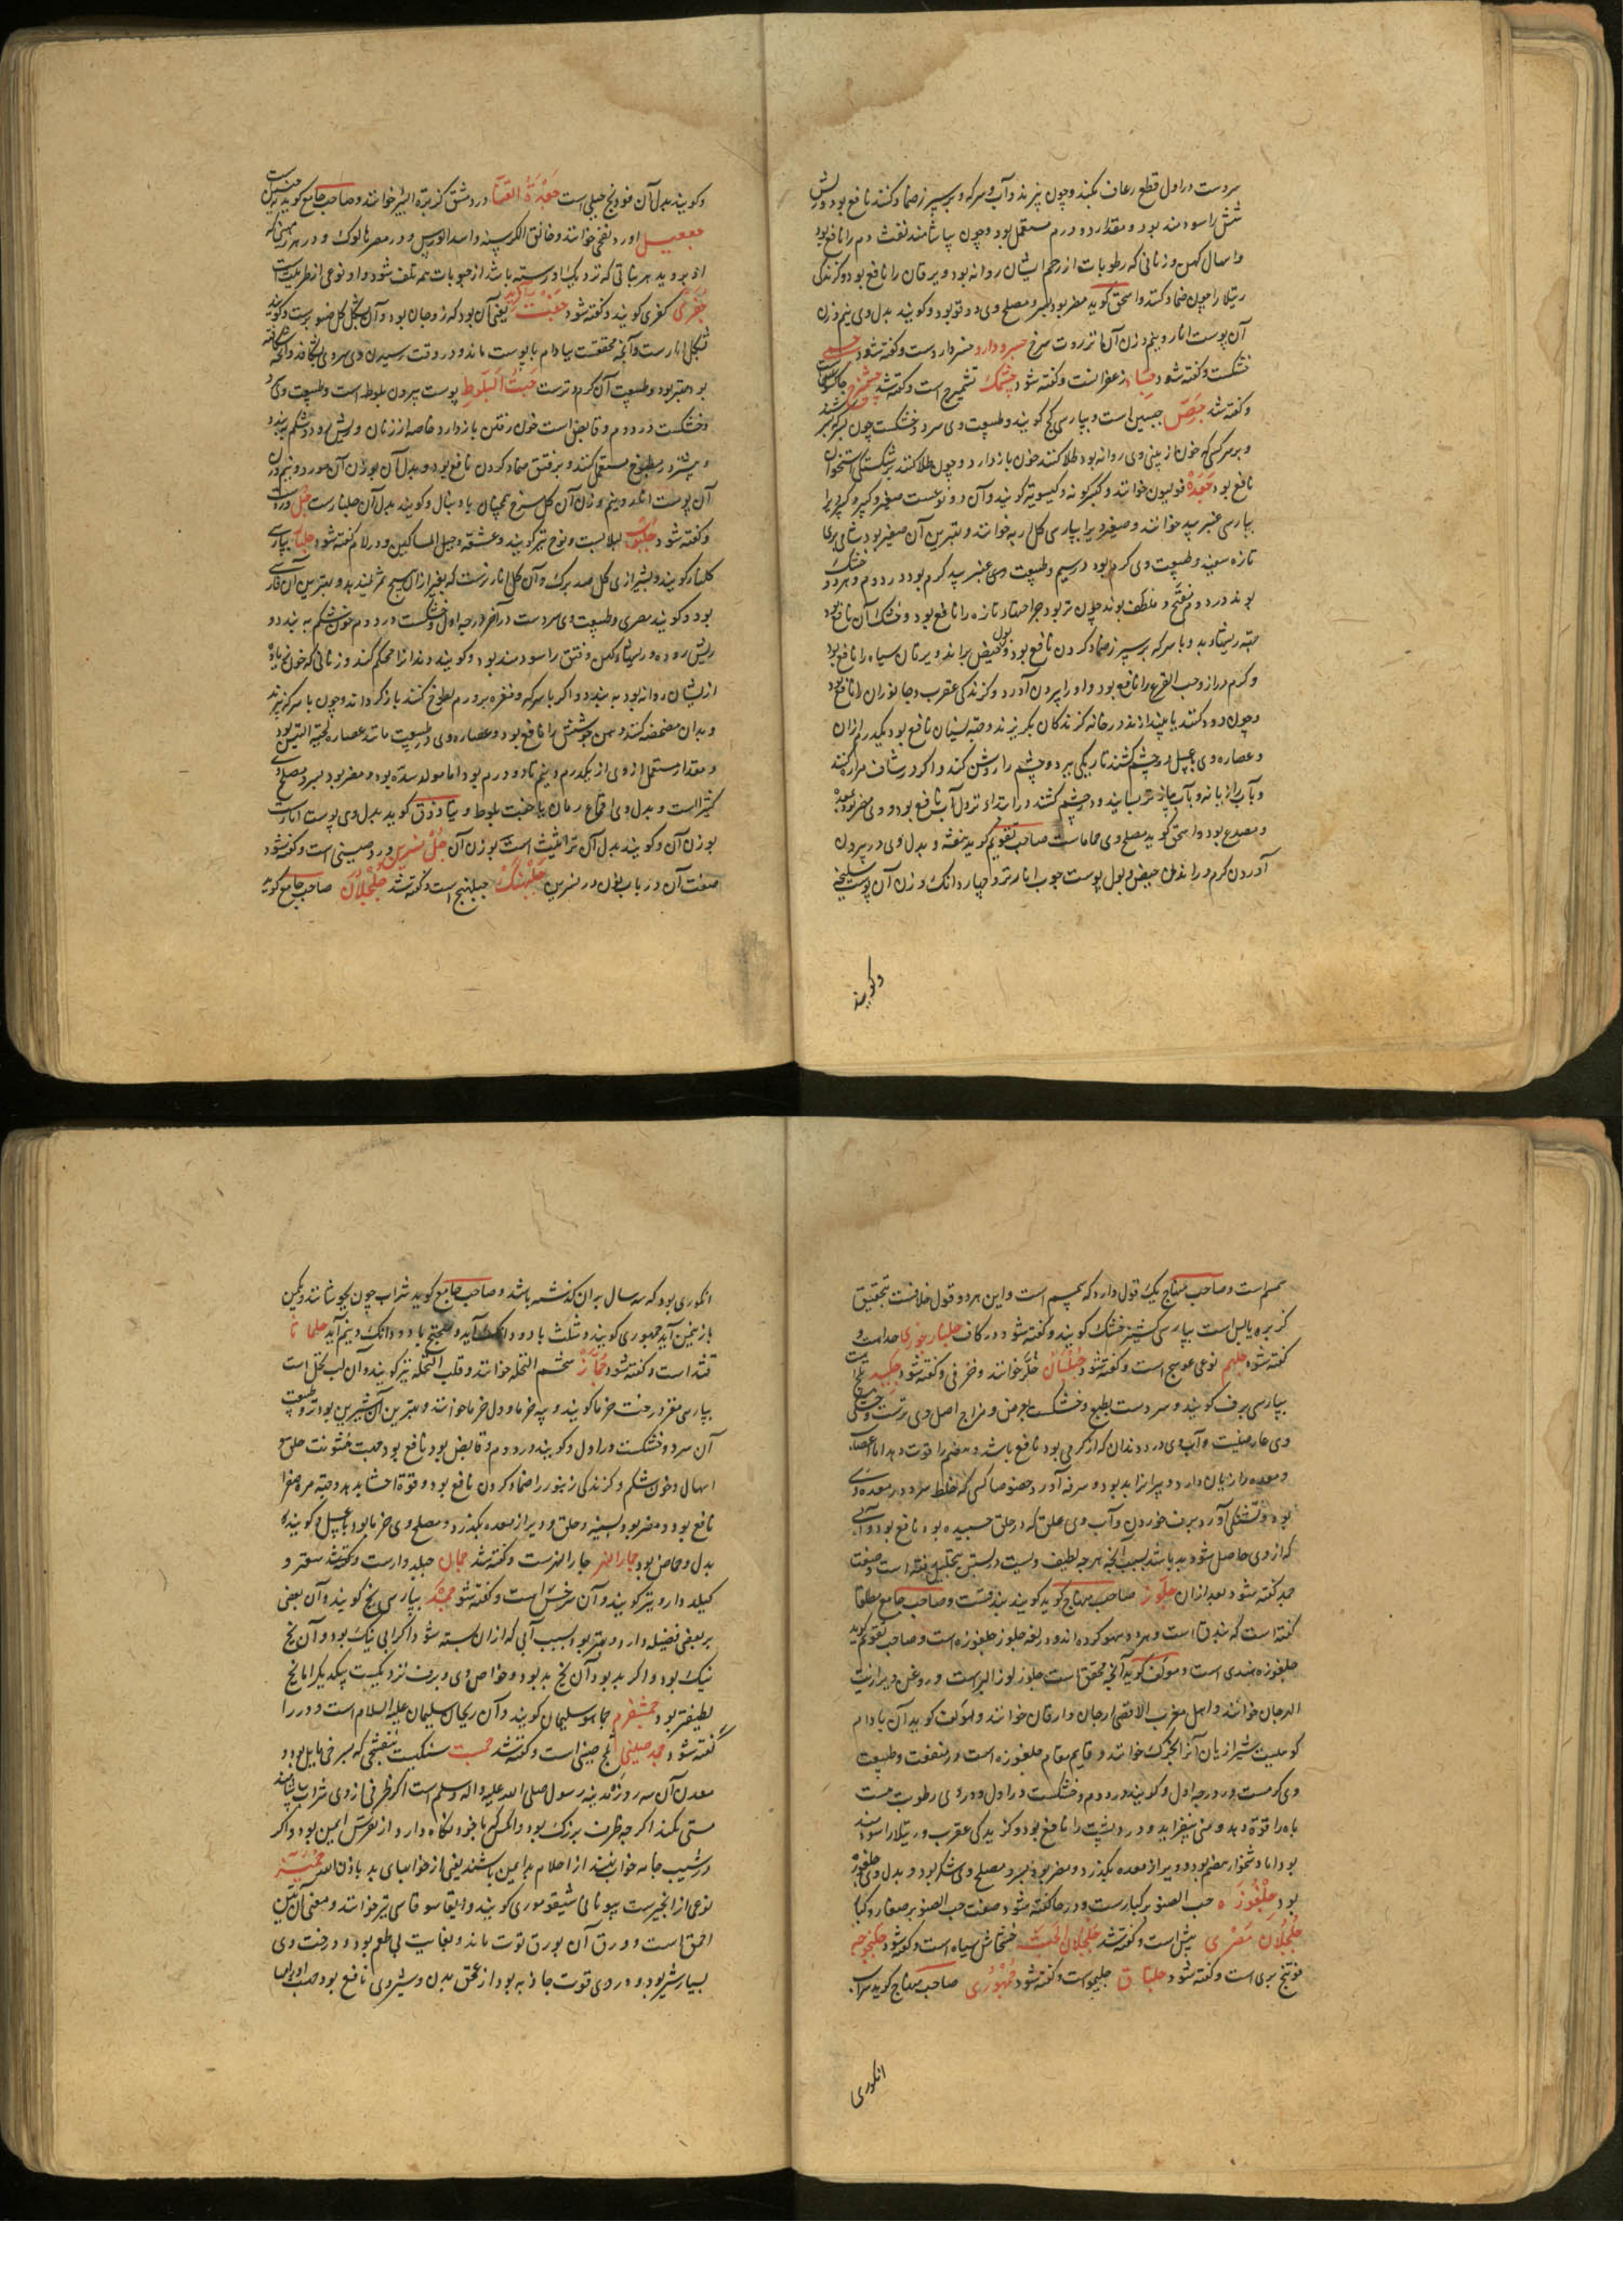 سردست در اول قطع رعاف بکند و چون بپزند و آب و سرکه و بر سپرز ضماد کنند نافع بود و ریش
شش را سودمند بود و مقدار دو درم مستعمل بود و چون بیاشامند نفث دم را نافع بود
و اسهال کهن و زنانی که رطوبات از رحم ایشان روانه بود و یرقان را نافع بود و گزندگی
رتیلا را چون ضماد کنند و اسحق گوید مضر بود بسر و مصلح وی دوقو بود و گویند بدل وی نیم وزن
آن پوست انار و نیم وزن آن انزروت سرخ جسرودارو خسرودارو است و گفته شود
خشکست و گفته شود جساد زعفرانست و گفته شود چشمک تشمیزج است و گفته شد چشمیزج
و گفته شد جص جبسین است و بپارسی گچ گویند و طبیعت وی سرد و خشکست چون بسرکه
و بر سر کسی که خون از بینی وی روانه بود طلا کنند خون بازدارد و چون طلا کنند بر شکستگی استخوان
نافع بود جعده فولیون خوانند و آن دو نوعست صغیر و کبیر و کبیر را
بپارسی عنبر بید خوانند و صغیر را بپارسی کل اربه خوانند و بهترین آن صغیر بود شامی بری
تازه سفید و طبیعت وی گرم بود در سیم و طبیعت وی عنبر بید گرم بود در دوم و هر دو خشک
بوند در دوم مفتح و ملطف بوند چون تر بود جراحتهاء تازه را نافع بود و خشک آن نافع بود
جهة ریشهاء بد و با سرکه بر سپرز ضماد کردن نافع بود و بول و حیض براند و یرقان سیاه را نافع بود
و کرم دراز و حب القرع را نافع بود و او را بیرون آورد و گزندگی عقرب و جانوران را نافع بود
و چون دود کنند یا بیندازند در خانه گزندگان بگریزند و جهة نسیان نافع بود یکدرم از آن
و عصاره وی با عسل در چشم کشند تاریکی ببرد و چشم را روشن کند و اگر در شیاف مرار کنند
و بآب رازیانه و بآب پیاز تر بسایند و در چشم کشند در ابتداء نزول آب نافع بود و وی مضر بود بمعده
و مصدع بود و اسحق گوید مصلح وی حماماست صاحب تقویم گوید بنفشه و بدل وی در بیرون
آوردن کرم و راندن حیض و بول پوست چوب انار تر و چهار دانگ وزن آن پوست سلیخه
وگویند
وگویند بدل آن فودنج جبلی است جعدة القنا در دمشق کزبرة البیر خوانند و صاحب جامع گوید
جعفیل او را دنفی خوانند و خانق الکرسنه و اسد العدس و در مصر هالوک و در هر زمینی که
او بروید هر نباتی که نزدیک او رسته باشد از حبوبات همه تلف شود و او نوعی از طراثیث است
جفری کفری گویند و گفته شود جفت آفرید یعنی آن بود که زوجان بود و آن بشکل گل صنوبرست و گویند
بشکل انارست و آنچه محققست ببادام با پوست ماند و در وقت رسیدن وی سر وی بشکافد و آنچه شکافته
بود بهتر بود و طبیعت آن گرم و ترست جفت البلوط پوست بیرون بلوطه است و طبیعت وی سرد
و خشکست در دوم و قابض است خون رفتن بازدارد خاصه از زنان و ریش روده و شکم ببندد
و بیشتر در مطبوخ مستعمل کنند و بر فتق ضماد کردن نافع بود و بدل آن بوزن آن مورد و نیم وزن
آن پوست انار و نیم وزن آن گل سرخ همچنان با دنبال و گویند بدل آن جلنارست جل ورد است
و گفته شود جلبوب لبلابست و نوع تیز گویند و عشقه و حبل المساکین و در لام گفته شود جلنار بپارسی
گلنار گویند و بشیرازی گل صد برگ و آن گل انار نرست که بغیر از آن هیچ ثمر نمی‌دهد و بهترین آن فارسی
بود و گویند مصری و طبیعت وی سردست در آخر درجه اول و خشکست در دوم خون شکم ببندد و
ریش روده و ریشهاء کهن و فتق را سودمند بود و گویند دندانرا محکم کند و زنانی که خون همیشه
از ایشان روانه بود ببندد و اگر با سرکه و نقره برورم لطوخ کنند بازگرداند و چون با سرکه بپزند
و بدان مضمضه کنند و بن جوشش را نافع بود و عصاره وی در طبیعت مانند عصاره لحیة التیس بود
و مقدار مستعمل از وی از یکدرم و نیم تا دو درم بود اما مولد سده بود و مضر بود بسر و مصلح وی
کتیراست و بدل وی اقماع رمان یا جفت بلوط و دیسقوریدوس گوید بدل وی پوست انارست
بوزن آن و گویند بدل آن قراثیثست بوزن آن جل نسرین ورد صینی است و گفته شود
صفت آن در باب نون در نسرین جلبهنگ جبلهنج است و گفته شد جلجلان صاحب جامع گوید
سمسم است و صاحب منهاج یک قول دارد که سمسم است و این هر دو قول خلافست بتحقیق
کزبره یابس است بپارسی گشنیز خشک گویند و گفته شود در کاف جلنار بوزی جداست و
گفته شود جلهم نوعی عوسج است و گفته شود جلبان خلر خوانند و خرفی و گفته شود جلید ثلج است
بپارسی برف گویند و سردست بطبع و خشکست بعرض و مزاج اصل وی ترست و خشکی
وی عارضیست و آب وی درد دندان که از گرمی بود نافع باشد و هضم را قوت دهد اما عصب
و معده را زیان دارد و پیرانرا بد بود و سرفه آورد خصوصا کسی که خلط سرد در معده وی
بود و تشنگی آورد برف خوردن و آب وی علق که در حلق چسبیده بود نافع بود و آبی
که از وی حاصل شود بد باشد بسبب آنکه هر چه لطیف ویست در بستن بتحلیل رفته است و صفت
جمد گفته شود بعد از آن جلوز صاحب منهاج گوید گویند بندقست و صاحب جامع مطلقا
گفته است که بندق است و هر دو سهو کرده‌اند و در لغه جلوز جلغوزه است و صاحب تقویم گوید
جلغوزه هندی است و مولف گوید آنچه محقق است جلوز لوز البر است و روغن ویرا زیت
الهرجان خوانند و اهل مغرب الاقصی ارجان و ارقان خوانند و مولف گوید آن بادام
کوهیست شیرازیان آنرا بخورک خوانند و قایم مقام جلغوزه است در منفعت و طبیعت
وی گرمست در درجه اول و گویند در دوم و خشکست در اول و در وی رطوبت هست
باه را قوة دهد و منی بیفزاید و درد پشت را نافع بود و گزیدگی عقرب و رتیلا را سودمند
بود اما دشخوار هضم بود و دیر از معده بگذرد و مضر بود بسر و مصلح وی شکر بود و بدل وی جلغوزه
بود جلغوزه حب الصنوبر کبارست و در حا گفته شود صفت حب الصنوبر صغار و کبار
جلجلان مصری بیش است و گفته شد جلجلان الحبش خشخاش سیاه است و گفته شود جلنجوجه
فوتنج بری است و گفته شود جلناق جلبوب است و گفته شود جمهوری صاحب منهاج گوید شراب
انگوری
انگوری بود که سه سال بر آن گذشته باشد و صاحب جامع گوید شراب چون بجوشانند و یکمن
بازنیمن آید جمهوری گویند و ثلث با دو دانگ آید و میفختج با دو دانگ و نیم آید جلماثا
قثا است و گفته شود جمار شحم النخله خوانند و قلب النخله نیز گویند و آن لب نخل است
بپارسی مغز درخت خرما گویند و پیه خرما و دل خرما خوانند و بهترین آن شیرین بود تر و طبیعت
آن سرد و خشکست در اول و گویند در دوم و قابض بود نافع بود جهت خشونت حلق و
اسهال و خون شکم و گزندگی زنبور را ضماد کردن نافع بود و قوة احشا بدهد و جهة مره صفرا
نافع بود و مضر بود بسینه و حلق و دیر از معده بگذرد و مصلح وی خرما بود یا عسل و گویند
بدل وی حماض بود جمار النهر جار النهرست و گفته شد جمان جبلدوارست و گفته شد سعتر و
کیلدارو نیز گویند و آن سرخس است و گفته شود جمد بپارسی یخ گویند و آن بعضی
بر بعضی فضیله دارد و بهتر بود بسبب آبی که از آن بسته شود اگر آبی نیک بود و آن یخ
نیک بود و اگر بد بود آن یخ بد بود و خواص وی و برف نزدیکست بیکدیگر اما یخ
لطیفتر بود جمسفرم جماهیر سلیمان گویند و آن ریحان سلیمان علیه السلام است و در را
گفته شود جمد صینی ثلج صینی است و گفته شد جمست سنگیست بنفشجی که بسرخی مایل بود و
معدن آن سه روزه مدینه رسول صلی الله علیه و اله وسلم است اگر ظرفی از وی شراب بیاشامند
مستی نکند اگر چه ظرف بزرگ بود و اگر کسی با خود نگاه دارد از نقرس ایمن بود و اگر
در شیب جامه خواب نهند از احلام بد ایمن باشند یعنی از خوابهای بد باذن الله جمیز
نوعی از انجیرست بیونانی شیقوموری گویند و ایضا سوقاسی نیز خوانند و معنی آن تین
احمق است و ورق آن بورق توت ماند و بغایت بی طعم بود و درخت وی
بسیار شیر بود و در وی قوت جاذبه بود از عمق بدن و شیر وی نافع بود جهت اورام